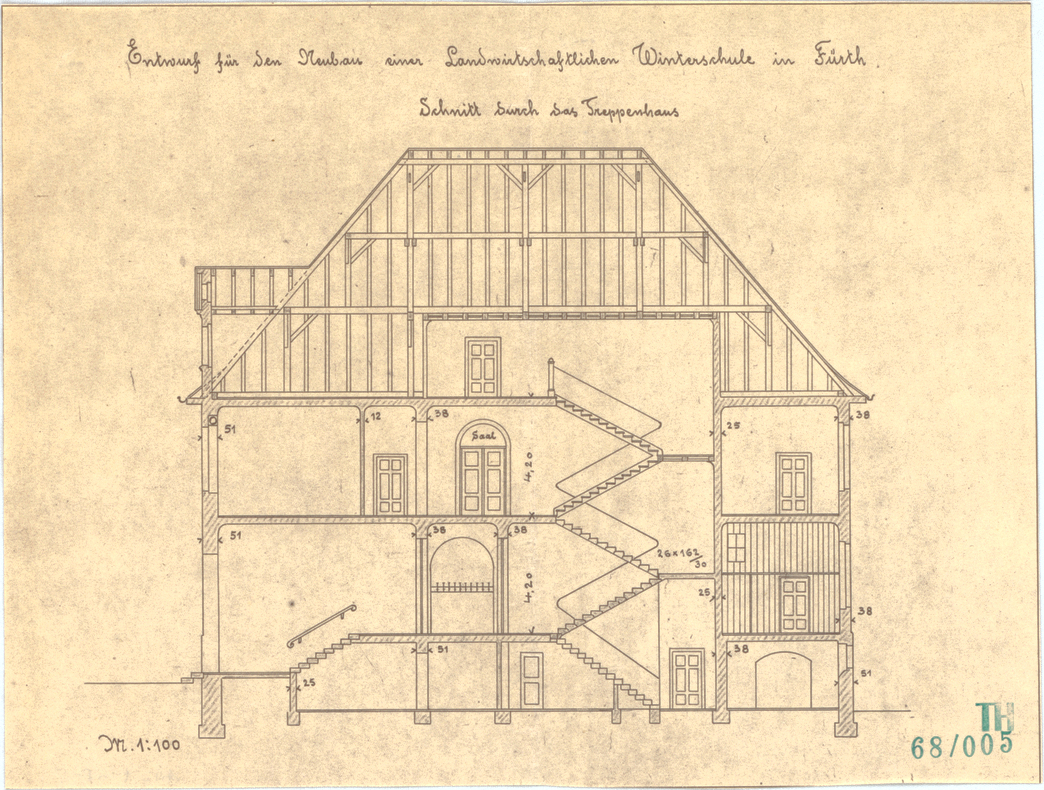 Entwurf für den Neubau einer Landwirtschaftlichen Winterschule in Fürth.
Schnitt durch das Treppenhaus
51
12
38
Saal
4,20
25
38
51
38
38
4,20
26x162/30
25
38
51
38
25
51
M. 1:100
TH
68/005